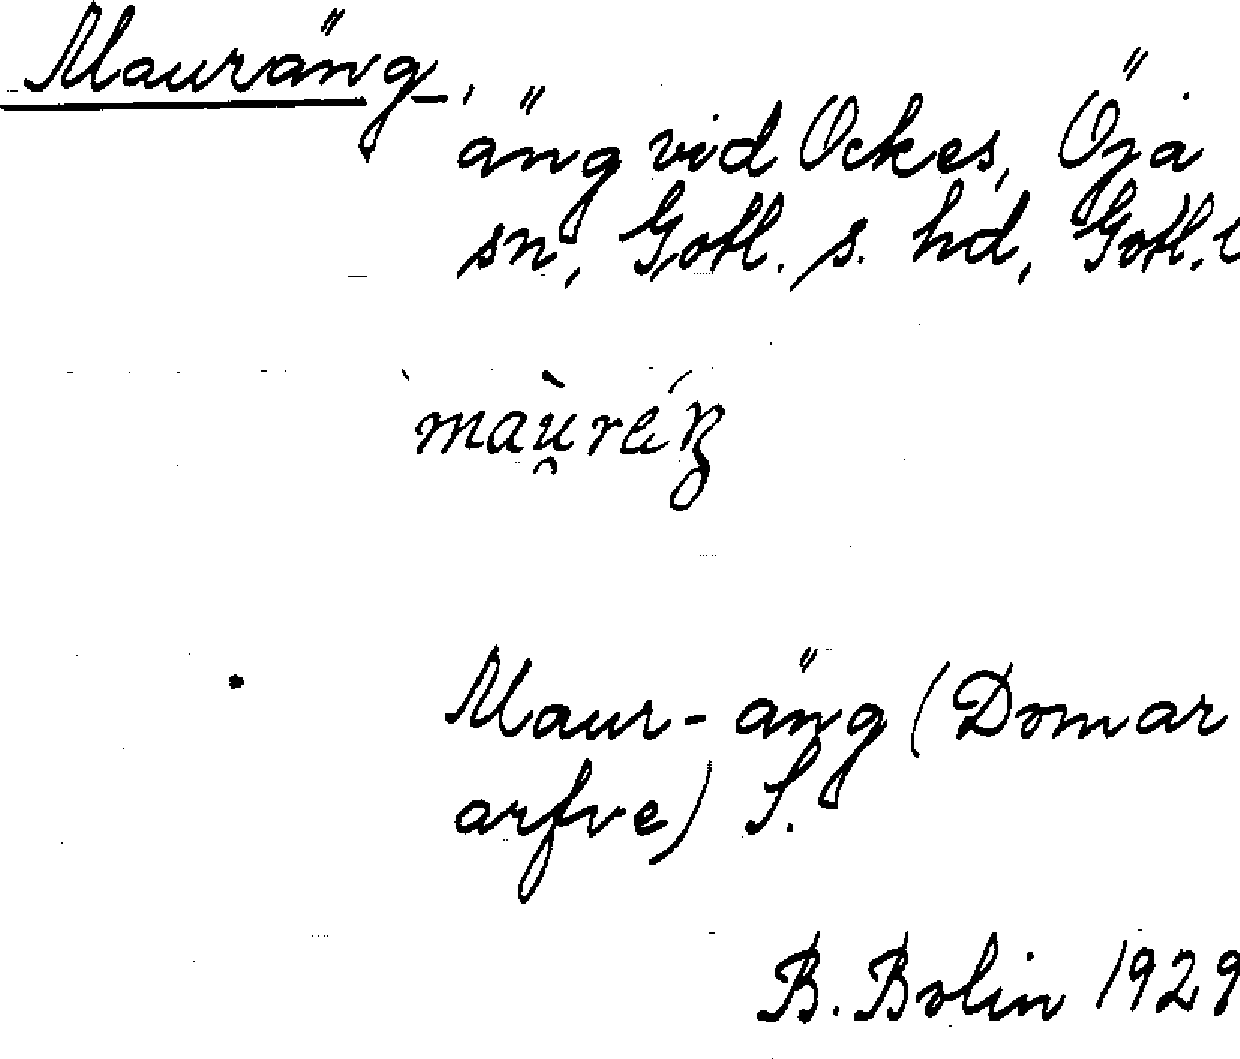 Mauräng,
äng vid Ockes, Öja
sn, Gotl. s. hd, Gotl. l
Maur-äng (Domar
arfve) S.
B. Bolin 1929